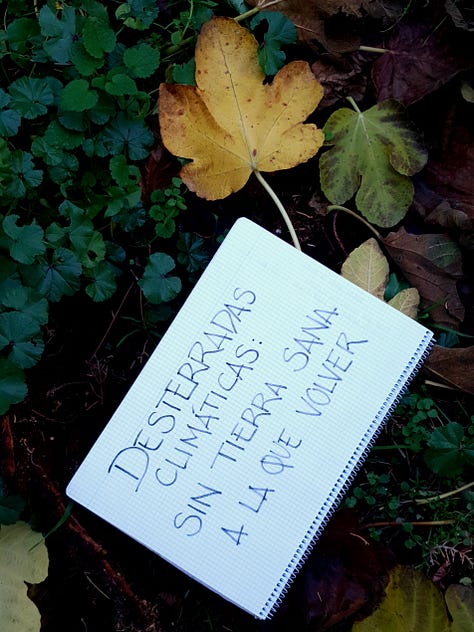 DESTERRADAS
CLIMÁTICAS:
SIN TIERRA SANA
A LA QUE VOLVER